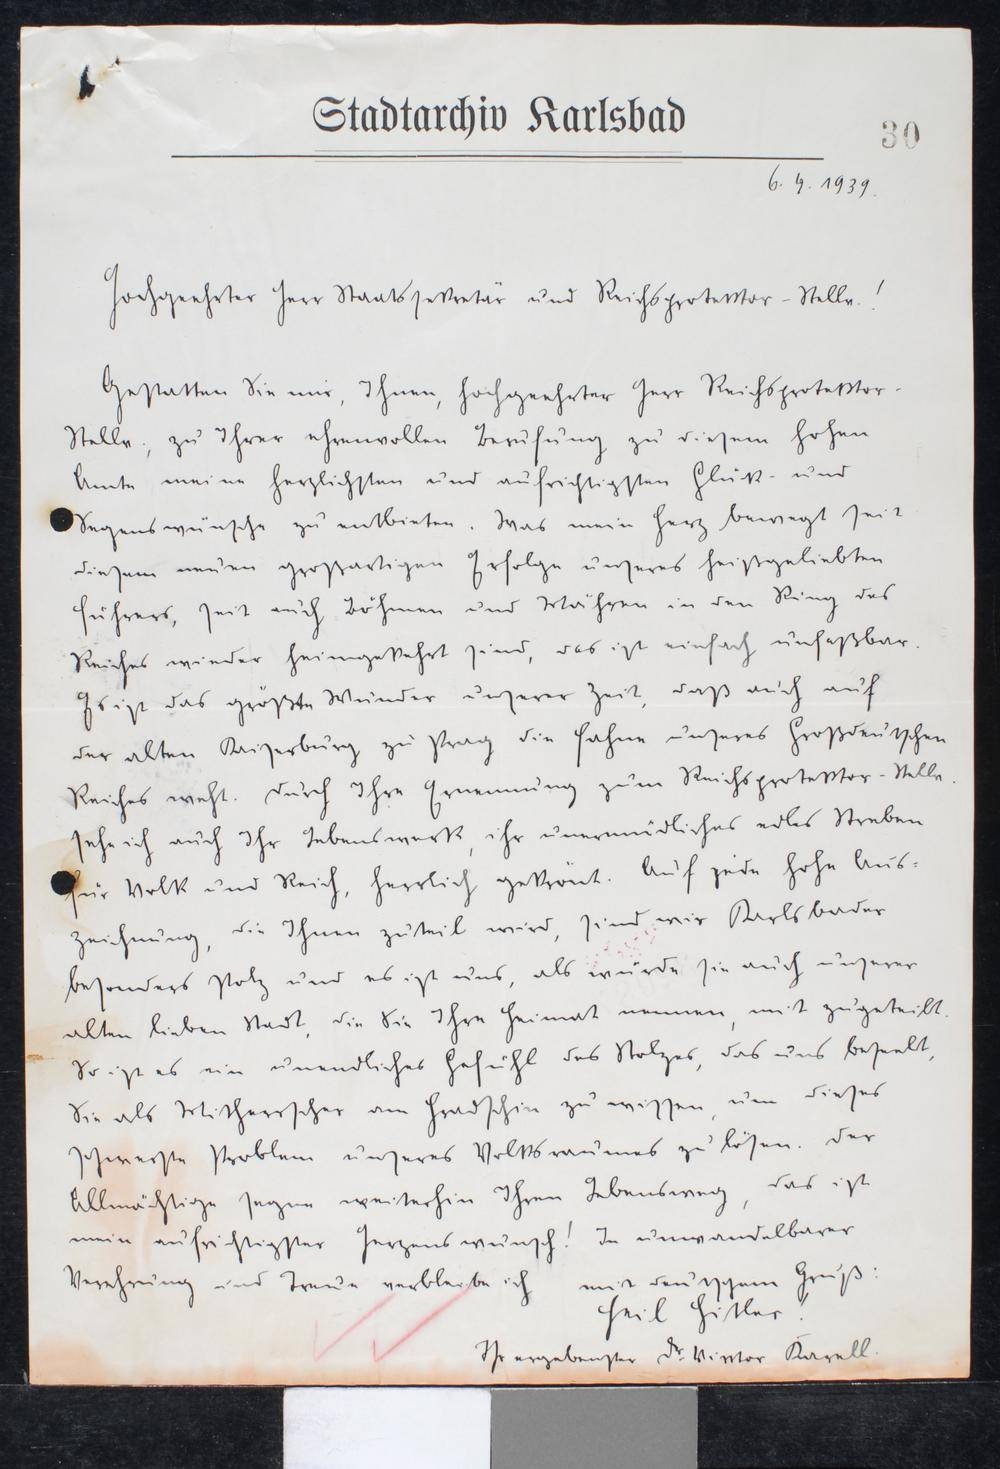 Stadtarchiv Karlsbad
30
6. 4. 1939.
Hochgeehrter Herr Staatssekretär und Reichsprotektor-Stellv.!
Gestatten Sie mir, Ihnen, hochgeehrter Herr Reichsprotektor-
Stellv., zu Ihrer ehrenvollen Berufung zu diesem hohen
Amte meine herzlichsten und aufrichtigsten Glück- und
Segenswünsche zu entbieten. Was mein Herz bewegt seit
diesem neuen großartigen Erfolge unseres heißgeliebten
Führers, seit auch Böhmen und Mähren in den Ring des
Reiches wieder heimgekehrt sind, das ist einfach unfaßbar.
Es ist das größte Wunder unserer Zeit, daß auch auf
der alten Kaiserburg zu Prag die Fahne unseres Großdeutschen
Reiches weht. Durch Ihre Ernennung zum Reichsprotektor-Stellv.
sehe ich auch Ihr Lebenswerk, ihr unermüdliches edles Streben
für Volk und Reich, herrlich gekrönt. Auf jede hohe Aus-
zeichnung, die Ihnen zuteil wird, sind wir Karlsbader
besonders stolz und es ist uns, als würde sie auch unserer
alten lieben Stadt, die Sie Ihre Heimat nennen, mit zugeteilt.
So ist es ein unendliches Gefühl des Stolzes, das uns beseelt,
Sie als Mitherrscher am Hradschin zu wissen, um dieses
schwerste Problem unseres Volksraumes zu lösen. Der
Allmächtige segne weiterhin Ihren Lebensweg, das ist
mein aufrichtigster Herzenswunsch! In unwandelbarer
Verehrung und Treue verbleibe ich mit deutschem Gruß:
Heil Hitler!
Ihr ergebenster Dr. Viktor Karell.